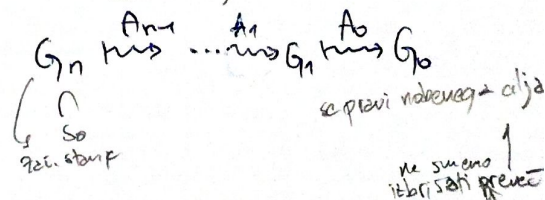 Aₙ₋₁ A₁ A₀
Gₙ ⟼ ... ⟿ G₁ ⟼ G₀
∩
S₀
zač. stanje
se pravi nobenega cilja
ne smemo
izbrisati preveč